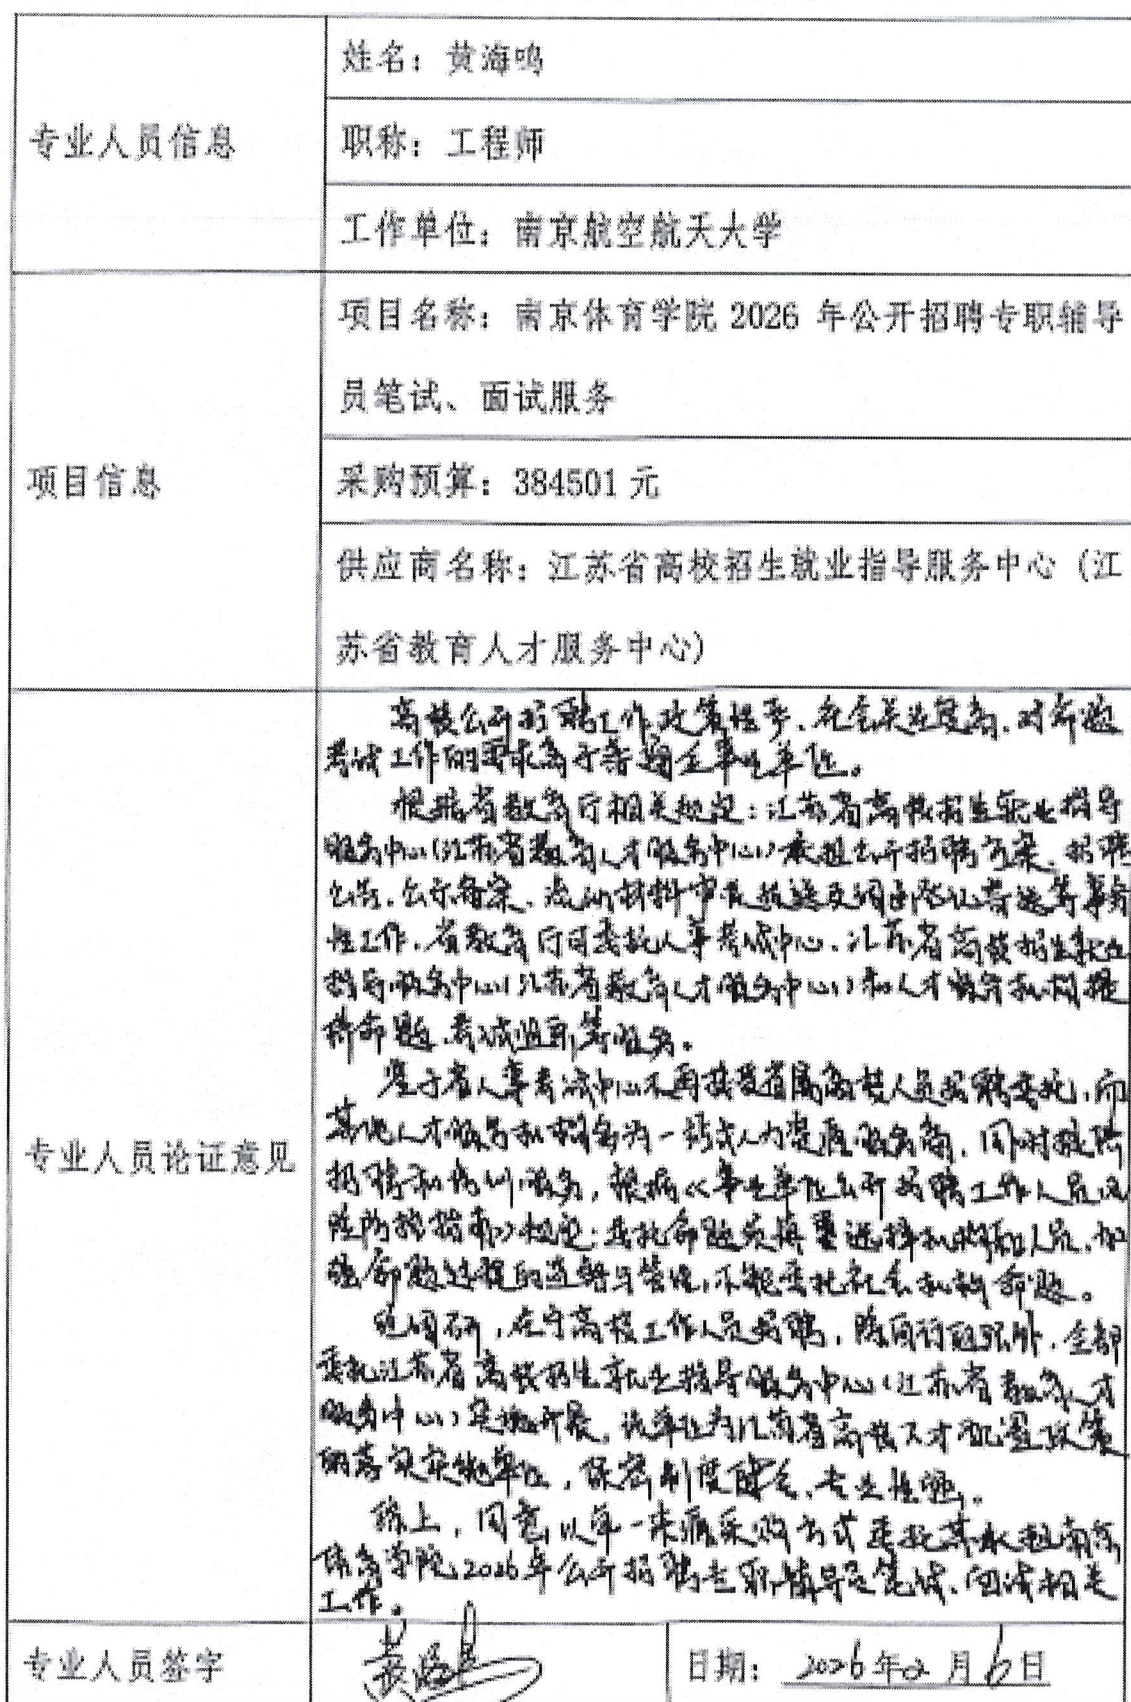 姓名：黄海鸣
专业人员信息
职称：工程师
工作单位：南京航空航天大学
项目名称：南京体育学院 2026 年公开招聘专职辅导
员笔试、面试服务
项目信息
采购预算：384501 元
供应商名称：江苏省高校招生就业指导服务中心（江
苏省教育人才服务中心）
高校公开招聘工作政策性强、社会关注度高、对命题
考试工作的要求高于普通企事业单位。
根据省教育厅相关规定：江苏省高校招生就业指导
服务中心（江苏省教育人才服务中心）承担公开招聘方案、招聘
公告、公示备案、材料审长等事务
性工作，省教育厅可委托人事考试中心、江苏省高校招生就业
指导服务中心（江苏省教育人才服务中心）和人才服务机构提
供命题、考试组织等服务。
鉴于省人事考试中心不再接受省属高校人员招聘委托，而
其他人才服务机构多为一站式人力资源服务商，同时提供
招聘和培训服务，根据《事业单位公开招聘工作人员风
险防控指南》规定：委托命题须慎重选择机构和人员，加
强命题过程的监督与管理，不能委托社会机构命题。
经调研，在宁高校工作人员招聘，除自行组织外，全部
委托江苏省高校招生就业指导服务中心（江苏省教育人才
服务中心）实施开展，该单位为江苏省高校人才配置政策
的落实实施单位，保密制度健全、专业性强。
专业人员论证意见
综上，同意以单一来源采购方式委托其承担南京
体育学院2026年公开招聘专职辅导员笔试、面试相关
工作。
专业人员签字
黄海鸣
日期： 2026年2月6日